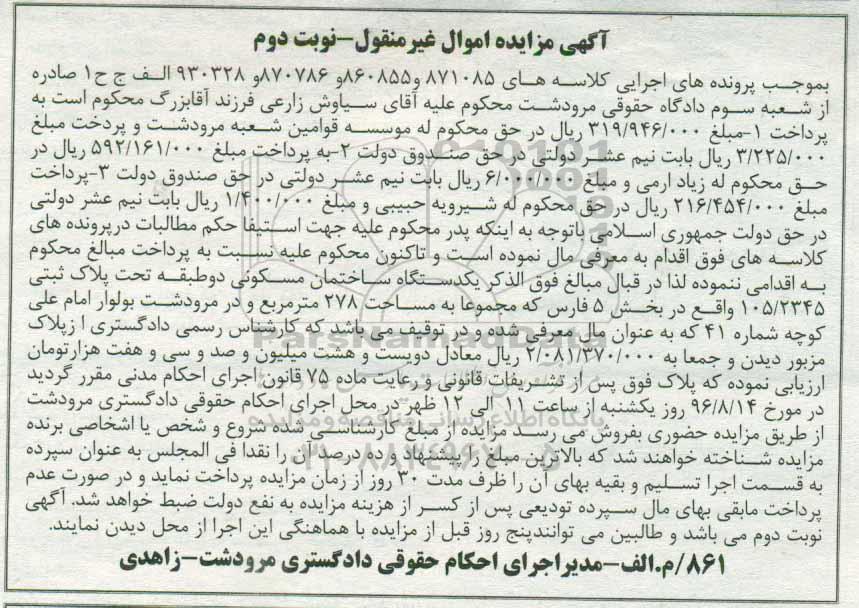 آگهی مزایده اموال غیرمنقول-نوبت دوم
بموجب پرونده های اجرایی کلاسه های ۸۷۱۰۸۵ و۸۶۰۸۵۵و ۸۷۰۷۸۶و ۹۳۰۳۲۸ الف ج ح۱ صادره
از شعبه سوم دادگاه حقوقی مرودشت محکوم علیه آقای سیاوش زارعی فرزند آقابزرگ محکوم است به
پرداخت ۱-مبلغ ۳۱۹/۹۴۶/۰۰۰ ریال در حق محکوم له موسسه قوامین شعبه مرودشت و پردخت مبلغ
۳/۲۲۵/۰۰۰ ریال بابت نیم عشر دولتی در حق صندوق دولت ۲-به پرداخت مبلغ ۵۹۲/۱۶۱/۰۰۰ ریال در
حق محکوم له زیاد ارمی و مبلغ ۶/۰۰۰/۰۰۰ ریال بابت نیم عشر دولتی در حق صندوق دولت ۳-پرداخت
مبلغ ۲۱۶/۴۵۴/۰۰۰ ریال در حق محکوم له شیرویه حبیبی و مبلغ ۱/۴۰۰/۰۰۰ ریال بابت نیم عشر دولتی
در حق دولت جمهوری اسلامی باتوجه به اینکه پدر محکوم علیه جهت استیفا حکم مطالبات درپرونده های
کلاسه های فوق اقدام به معرفی مال نموده است و تاکنون محکوم علیه نسبت به پرداخت مبالغ محکوم
به اقدامی ننموده لذا در قبال مبالغ فوق الذکر یکدستگاه ساختمان مسکونی دوطبقه تحت پلاک ثبتی
۱۰۵/۲۳۴۵ واقع در بخش ۵ فارس که مجموعا به مساحت ۲۷۸ مترمربع و در مرودشت بولوار امام علی
کوچه شماره ۴۱ که به عنوان مال معرفی شده و در توقیف می باشد که کارشناس رسمی دادگستری ا زپلاک
مزبور دیدن و جمعا به ۲/۰۸۱/۳۷۰/۰۰۰ ریال معادل دویست و هشت میلیون و صد و سی و هفت هزارتومان
ارزیابی نموده که پلاک فوق پس از تشریفات قانونی و رعایت ماده ۷۵ قانون اجرای احکام مدنی مقرر گردید
در مورخ ۹۶/۸/۱۴ روز یکشنبه از ساعت ۱۱ الی ۱۲ ظهر در محل اجرای احکام حقوقی دادگستری مرودشت
از طریق مزایده حضوری بفروش می رسد مزایده از مبلغ کارشناسی شده شروع و شخص یا اشخاصی برنده
مزایده شناخته خواهند شد که بالاترین مبلغ را پیشنهاد و ده درصد آن را نقدا فی المجلس به عنوان سپرده
به قسمت اجرا تسلیم و بقیه بهای آن را ظرف مدت ۳۰ روز از زمان مزایده پرداخت نماید و در صورت عدم
پرداخت مابقی بهای مال سپرده تودیعی پس از کسر از هزینه مزایده به نفع دولت ضبط خواهد شد. آگهی
نوبت دوم می باشد و طالبین می توانندپنج روز قبل از مزایده با هماهنگی این اجرا از محل دیدن نمایند.
۸۶۱/م.الف-مدیراجرای احکام حقوقی دادگستری مرودشت-زاهدی
ParsNamadData